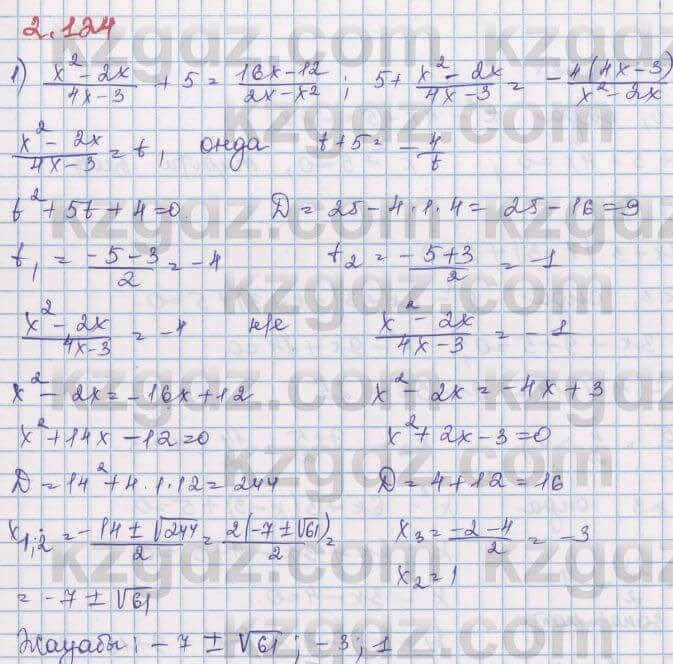 2.124
1) (x² - 2x)/(4x-3) + 5 = (16x-12)/(2x-x²) ; 5+ (x² - 2x)/(4x-3) = - 4(4x-3)/(x²-2x)
(x² - 2x)/(4x-3) = t, онда t+5 = - 4/t
t² + 5t + 4 = 0. D = 25 - 4·1·4 = 25 - 16 = 9
t₁ = (-5-3)/2 = -4 t₂ = (-5+3)/2 = -1
(x² - 2x)/(4x-3) = -4 н/е (x² - 2x)/(4x-3) = -1
x² - 2x = -16x+12 x² - 2x = -4x + 3
x² + 14x - 12 = 0 x² + 2x - 3 = 0
D = 14² + 4·1·12 = 244 D = 4+12 = 16
x₁;₂ = (-14 ± √244)/2 = 2(-7 ± √61)/2 = x₃ = (-2-4)/2 = -3
= -7 ± √61 x₂ = 1
Жауабы: -7 ± √61 ; -3 ; 1
kzgdz.com